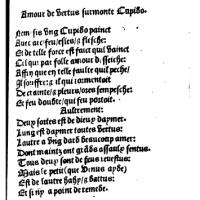 Amour de Vertus surmonte Cupido.
Rem sis Vng Cupido painct
Auec arc / feu / esles / & flesche:
Et de telle force est faict quil vainct
Cil qui par folle amour
Affin que en telle faulte quil peche /
Il souffre:& il que
De craincte / & pleurs / oses sempesche
Et feu doubte / qui feu
Autrement:
Deux sortes est de dieux daymer.
Lung est daymer toutes Vertus:
Lautre a Vng dard beaucoup amer:
Dont maintz ont grãdz assaulx sentus.
Tous deux sont de feux reuestus:
Mais le petit (que Venus ayde)
Est de lautre hahy / & battus:
Et si ny a point de remede.